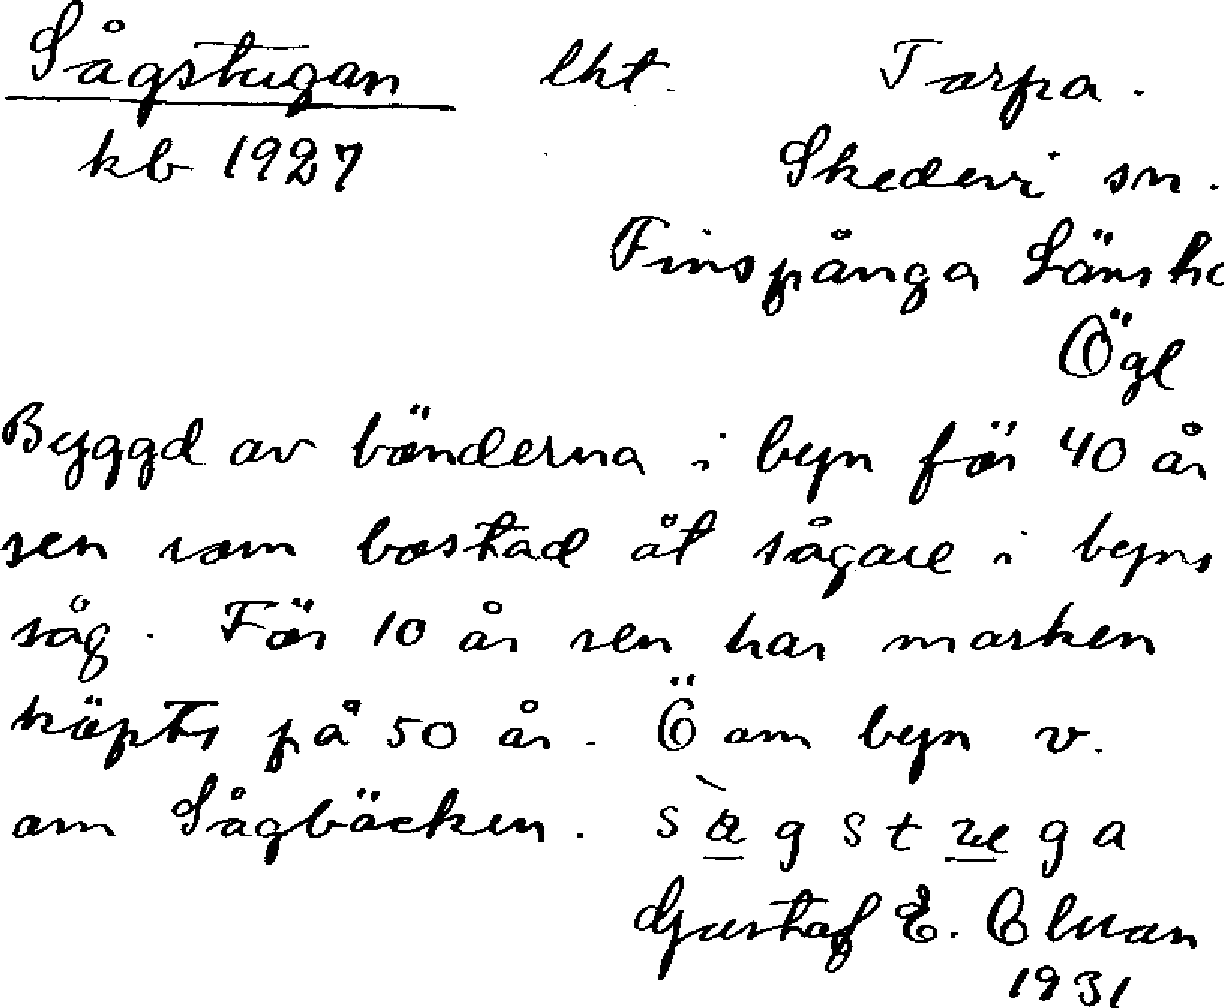 Sågstugan lht. Torpa.
kb 1927 Skedevi sn.
Finspånga Länsh
Ögl
Byggd av bönderna i byn för 40 år
sen som bostad åt sågare i byns
såg. För 10 år sen har marken
köpts på 50 år. Ö om byn v.
om Sågbäcken.
Gustaf E.
1931